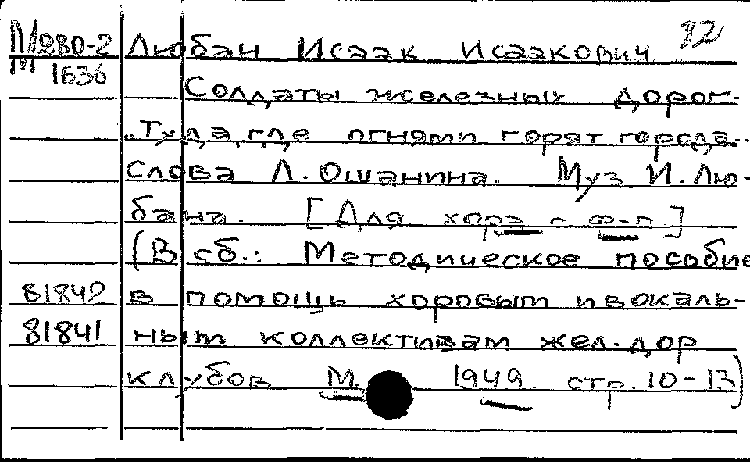 М280-2 Любан Исаак Исаакович 82
М 1636
Солдаты железных дорог.
„Туда, где огнями горят города..
Слова Л. Ошанина. Муз И. Лю-
бана. [Для хора с ф-п.]
(В сб.: Методическое пособие
81842 в помощь хоровым и вокаль-
81841 ным коллективам жел. дор
клубов М. 1949 стр. 10-13)